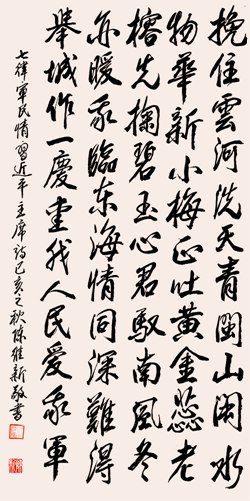 挽住雲河洗天青閩山閩水
物華新小梅正吐黄金蕊老
榕先掬碧玉心君馭南風冬
亦暖我臨东海情同深難得
舉城作一慶爱我人民愛我軍
七律軍民情習近平主席詩己亥之秋陳維新敬書